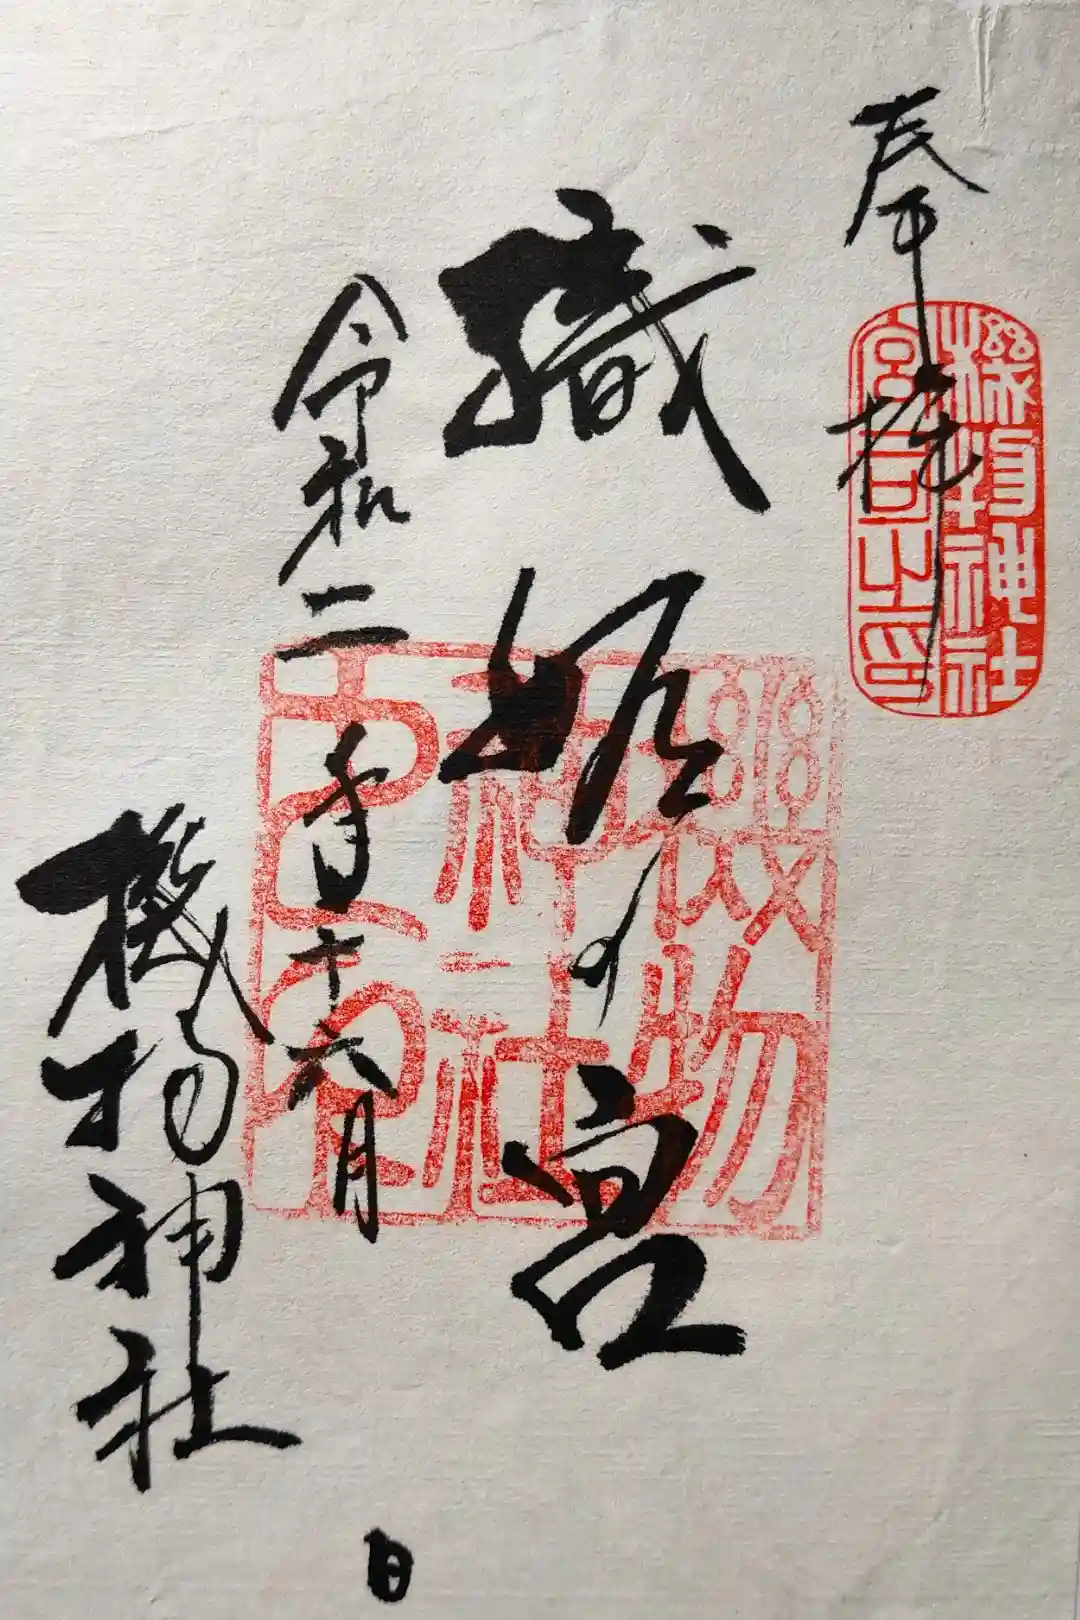 奉拝
機物神社
宮司之印
織姫の宮
機物
神社
令和二年十六月
日
機物神社